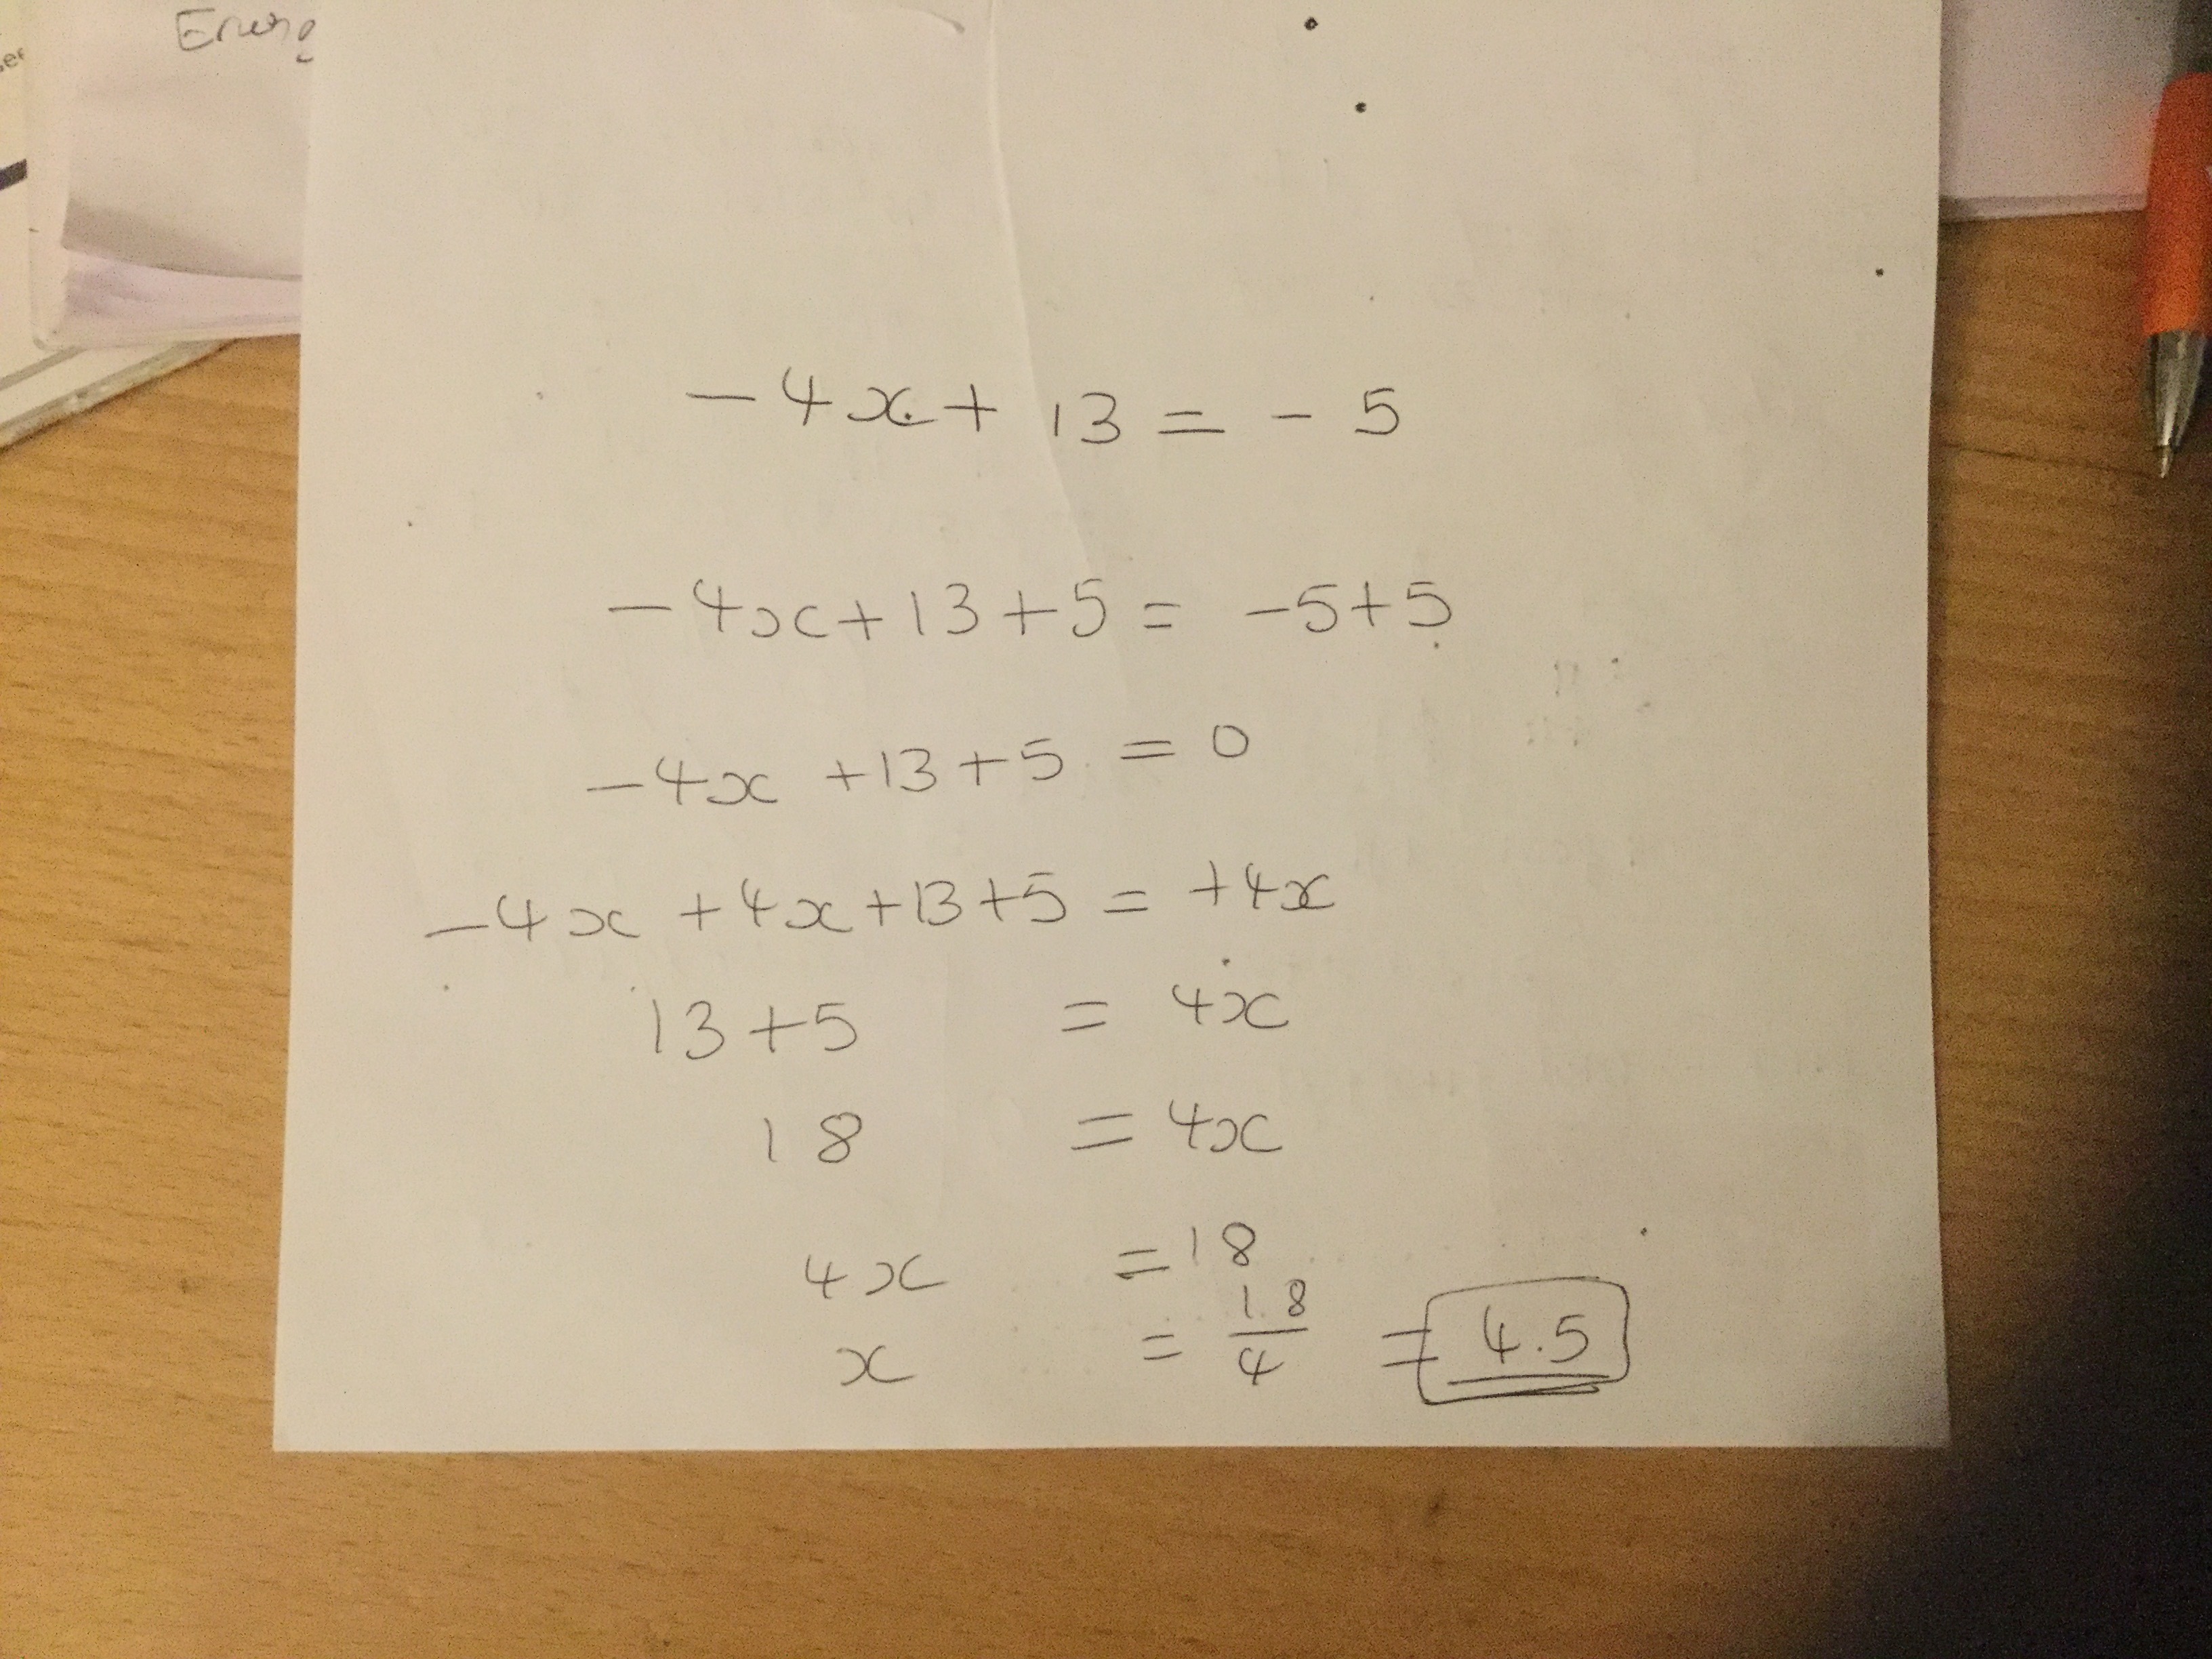 -4x + 13 = - 5
-4x+13+5 = -5+5
-4x +13+5 = 0
-4x +4x+13+5 = +4x
13+5 = 4x
18 = 4x
4x = 18
x = 18/4 = 4.5